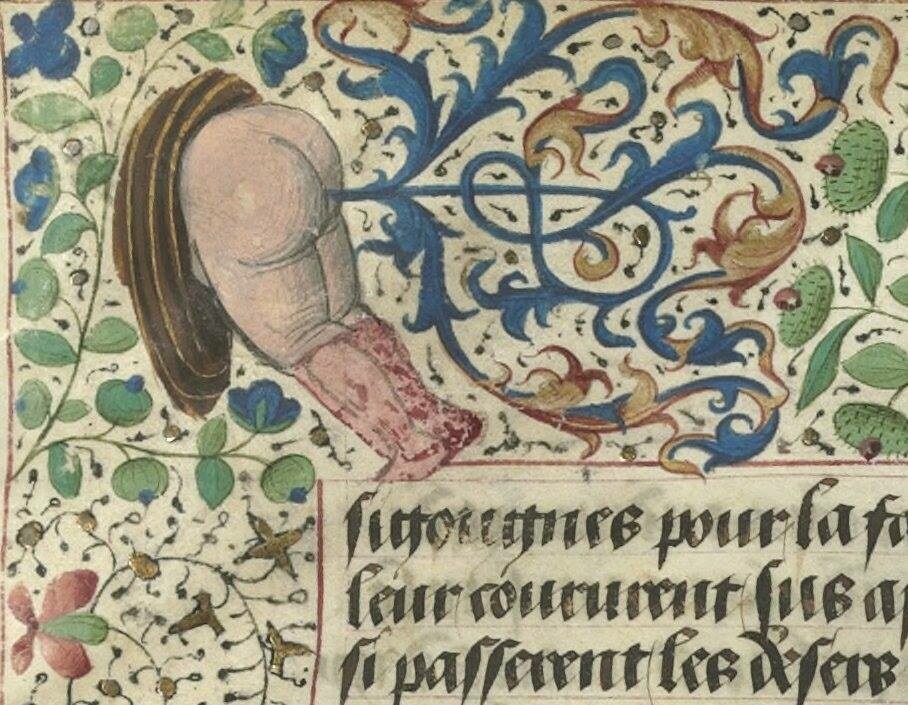 sigougnes pour la fo
leur coururent sus ap
si passerent les desers